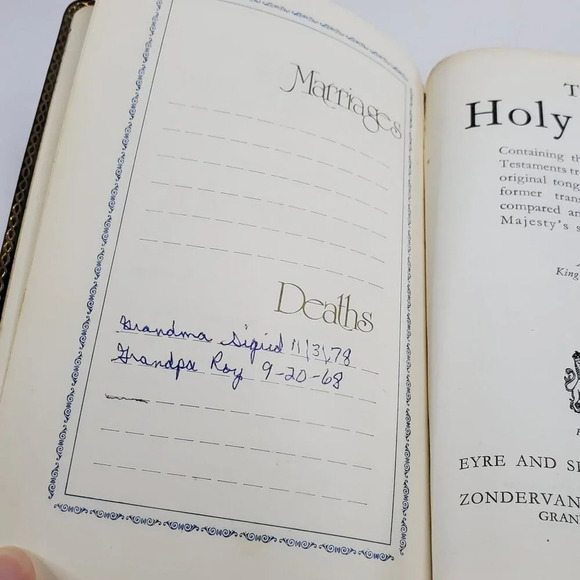 Marriages
Deaths
Grandma Sigrid 11/3/78
Grandpa Roy 9-20-68
T
Holy
Containing th
Testaments tr
original tong
former trans
compared an
Majesty's s
King
EYRE AND SP
ZONDERVAN
GRAN